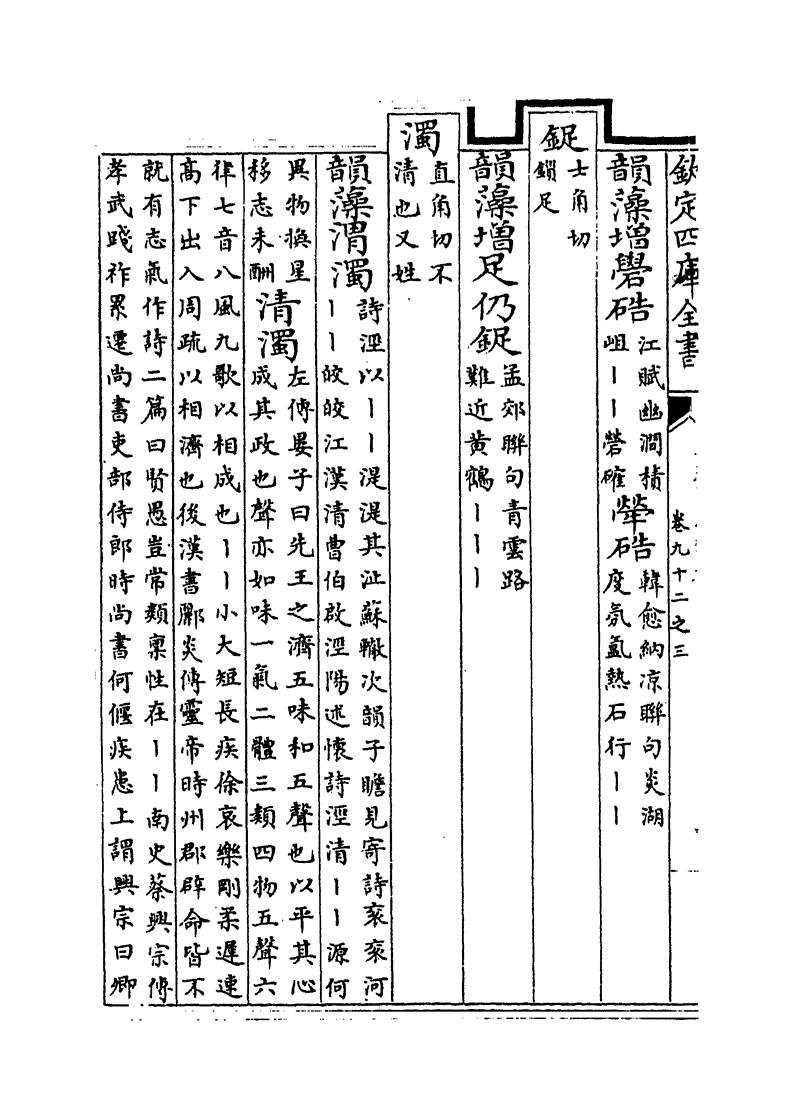 欽定四庫全書
卷九十二之三
韻藻增礐硞
江賦幽澗積
岨丨丨確
犖硞
韓愈納凉聯句炎湖
度氛氳熱石行丨丨
鋜
士角切
鎖足
韻藻增足仍鋜
孟郊聯句青雲路
難近黄鶴丨丨丨
濁
直角切不
清也又姓
韻藻渭濁
詩涇以丨丨湜湜其沚蘇轍次韻子瞻見寄詩衮衮河
丨丨皎皎江漢清曹伯啟涇陽述懷詩涇清丨丨源何
異物換星
移志未酬
清濁
左傳晏子曰先王之濟五味和五聲也以平其心
成其政也聲亦如味一氣二體三類四物五聲六
律七音八風九歌以相成也丨丨小大短長疾徐哀樂剛柔遲速
高下出入周疏以相濟也後漢書酈炎傳靈帝時州郡辟命皆不
就有志氣作詩二篇曰賢愚豈常類稟性在丨丨南史蔡興宗傳
孝武踐祚累遷尚書吏部侍郎時尚書何偃疾患上謂興宗曰卿